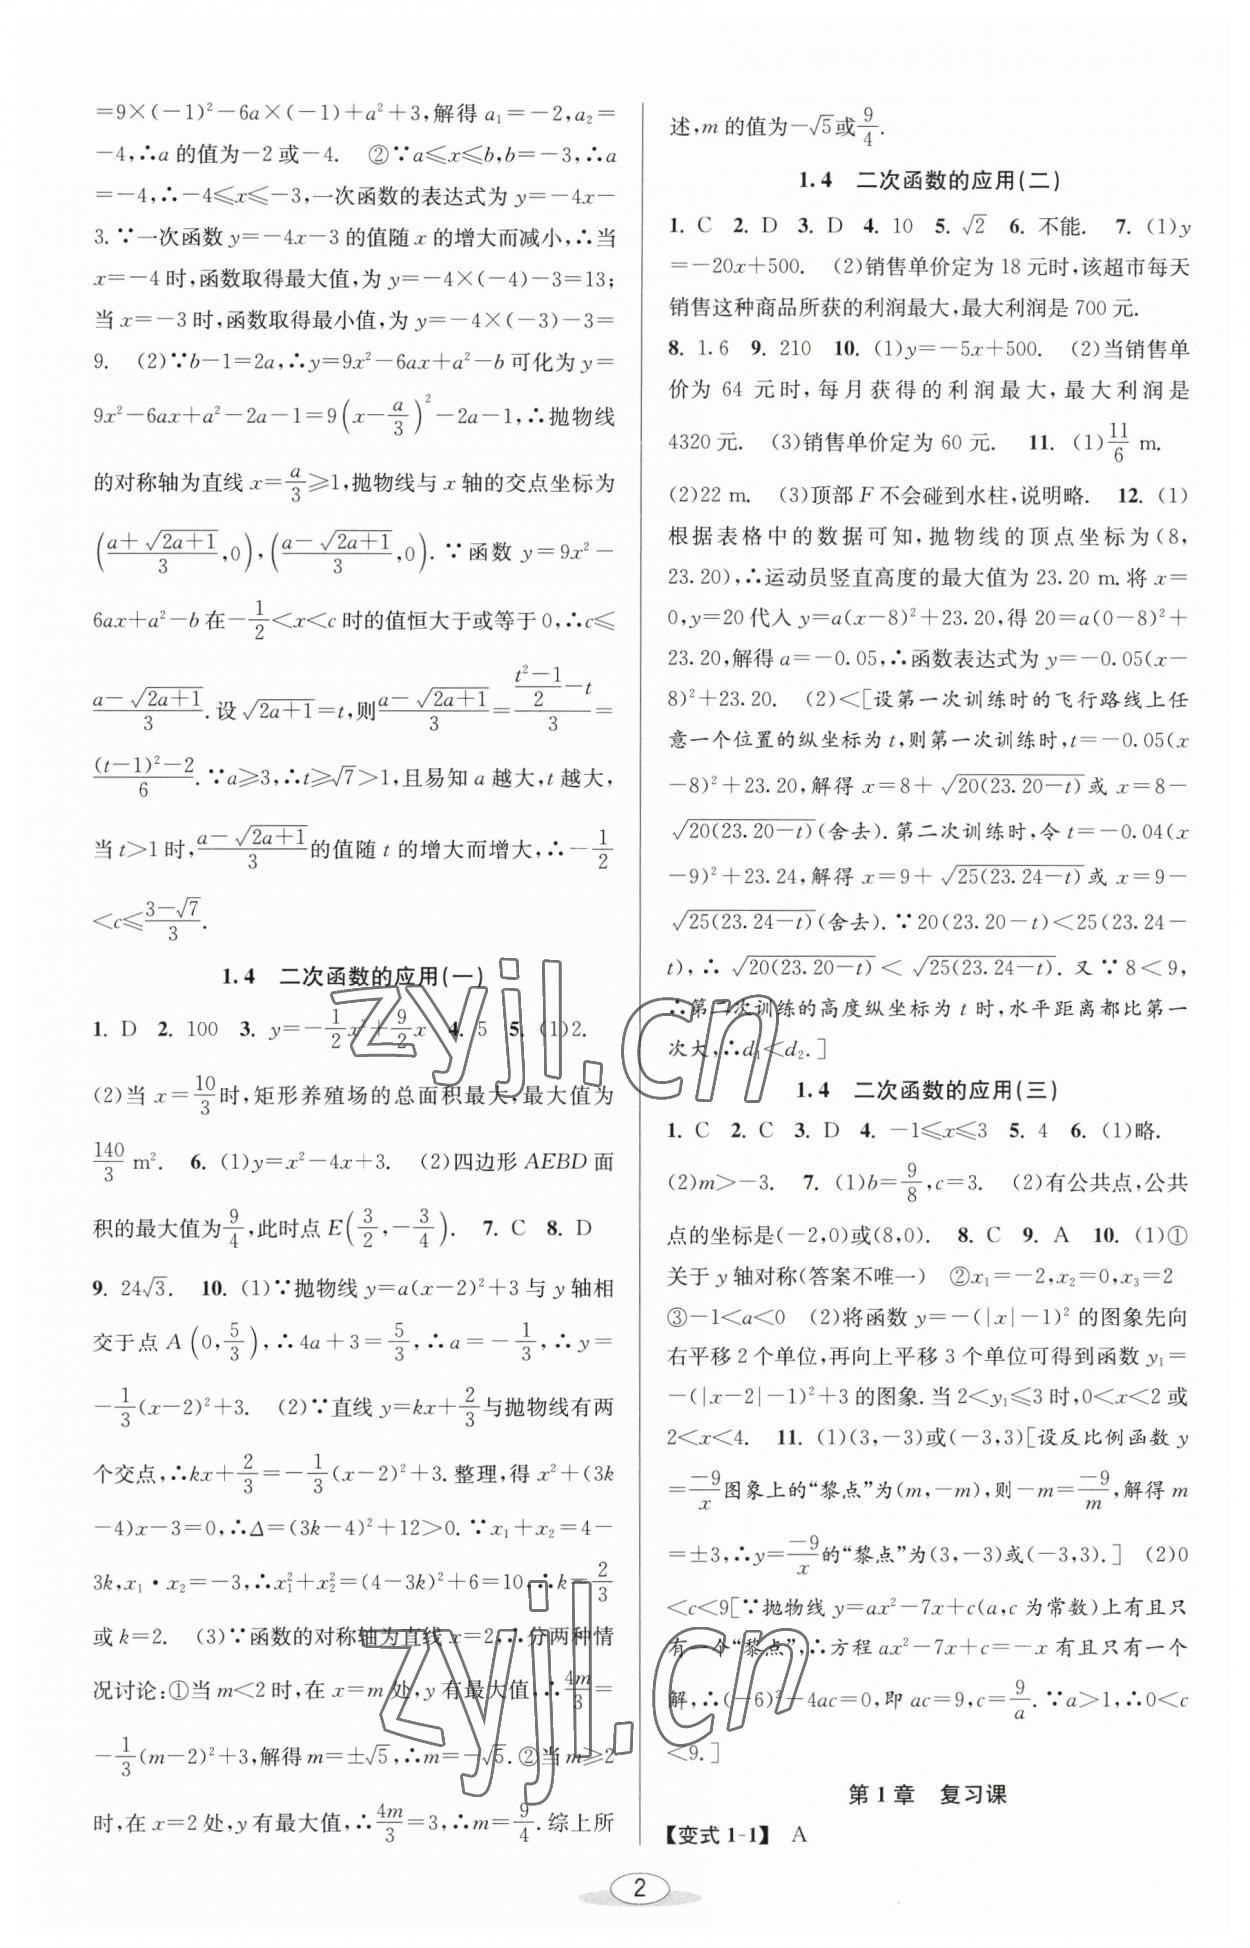 =9×(-1)²-6a×(-1)+a²+3,解得 a₁=-2,a₂=
-4,∴a 的值为-2 或-4. ②∵a≤x≤b,b=-3,∴a
=-4,∴-4≤x≤-3,一次函数的表达式为 y=-4x-
3.∵一次函数 y=-4x-3 的值随 x 的增大而减小,∴当
x=-4 时,函数取得最大值,为 y=-4×(-4)-3=13;
当 x=-3 时,函数取得最小值,为 y=-4×(-3)-3=
9. (2)∵b-1=2a,∴y=9x²-6ax+a²-b 可化为 y=
9x²-6ax+a²-2a-1=9(x-a/3)²-2a-1,∴抛物线
的对称轴为直线 x=a/3≥1,抛物线与 x 轴的交点坐标为
((a+√(2a+1))/3,0),((a-√(2a+1))/3,0).∵函数 y=9x²-
6ax+a²-b 在-1/2<x<c 时的值恒大于或等于 0,∴c≤
(a-√(2a+1))/3.设√(2a+1)=t,则(a-√(2a+1))/3=((t²-1)/2-t)/3=
((t-1)²-2)/6.∵a≥3,∴t≥√7>1,且易知 a 越大,t 越大,
当 t>1 时,(a-√(2a+1))/3的值随 t 的增大而增大,∴-1/2
<c≤(3-√7)/3.
1.4 二次函数的应用(一)
1. D 2. 100 3. y=-1/2x²+9/2x 4. 5 5. (1)2.
(2)当 x=10/3时,矩形养殖场的总面积最大,最大值为
140/3 m². 6. (1)y=x²-4x+3. (2)四边形 AEBD 面
积的最大值为9/4,此时点 E(3/2,-3/4). 7. C 8. D
9. 24√3. 10. (1)∵抛物线 y=a(x-2)²+3 与 y 轴相
交于点 A(0,5/3),∴4a+3=5/3,∴a=-1/3,∴y=
-1/3(x-2)²+3. (2)∵直线 y=kx+2/3与抛物线有两
个交点,∴kx+2/3=-1/3(x-2)²+3.整理,得 x²+(3k
-4)x-3=0,∴Δ=(3k-4)²+12>0.∵x₁+x₂=4-
3k,x₁·x₂=-3,∴x₁²+x₂²=(4-3k)²+6=10,∴k=2/3
或 k=2. (3)∵函数的对称轴为直线 x=2,∴分两种情
况讨论:①当 m<2 时,在 x=m 处,y 有最大值,∴4m/3=
-1/3(m-2)²+3,解得 m=±√5,∴m=-√5.②当 m≥2
时,在 x=2 处,y 有最大值,∴4m/3=3,∴m=9/4.综上所
述,m 的值为-√5或9/4.
1.4 二次函数的应用(二)
1. C 2. D 3. D 4. 10 5. √2 6. 不能. 7. (1)y
=-20x+500. (2)销售单价定为 18 元时,该超市每天
销售这种商品所获的利润最大,最大利润是 700 元.
8. 1.6 9. 210 10. (1)y=-5x+500. (2)当销售单
价为 64 元时,每月获得的利润最大,最大利润是
4320 元. (3)销售单价定为 60 元. 11. (1)11/6 m.
(2)22 m. (3)顶部 F 不会碰到水柱,说明略. 12. (1)
根据表格中的数据可知,抛物线的顶点坐标为(8,
23.20),∴运动员竖直高度的最大值为 23.20 m.将 x=
0,y=20 代入 y=a(x-8)²+23.20,得 20=a(0-8)²+
23.20,解得 a=-0.05,∴函数表达式为 y=-0.05(x-
8)²+23.20. (2)<[设第一次训练时的飞行路线上任
意一个位置的纵坐标为 t,则第一次训练时,t=-0.05(x
-8)²+23.20,解得 x=8+√(20(23.20-t))或 x=8-
√(20(23.20-t))(舍去).第二次训练时,令 t=-0.04(x
-9)²+23.24,解得 x=9+√(25(23.24-t))或 x=9-
√(25(23.24-t))(舍去).∵20(23.20-t)<25(23.24-
t),∴√(20(23.20-t))<√(25(23.24-t)).又∵8<9,
∴第二次训练的高度纵坐标为 t 时,水平距离都比第一
次大,∴d₁<d₂.]
1.4 二次函数的应用(三)
1. C 2. C 3. D 4. -1≤x≤3 5. 4 6. (1)略.
(2)m>-3. 7. (1)b=9/8,c=3. (2)有公共点,公共
点的坐标是(-2,0)或(8,0). 8. C 9. A 10. (1)①
关于 y 轴对称(答案不唯一) ②x₁=-2,x₂=0,x₃=2
③-1<a<0 (2)将函数 y=-(|x|-1)² 的图象先向
右平移 2 个单位,再向上平移 3 个单位可得到函数 y₁=
-(|x-2|-1)²+3 的图象.当 2<y₁≤3 时,0<x<2 或
2<x<4. 11. (1)(3,-3)或(-3,3)[设反比例函数 y
=-9/x图象上的“黎点”为(m,-m),则-m=-9/m,解得 m
=±3,∴y=-9/x的“黎点”为(3,-3)或(-3,3).] (2)0
<c<9[∵抛物线 y=ax²-7x+c(a,c 为常数)上有且只
有一个“黎点”,∴方程 ax²-7x+c=-x 有且只有一个
解,∴(-6)²-4ac=0,即 ac=9,c=9/a.∵a>1,∴0<c
<9.]
第 1 章 复习课
【变式 1-1】 A
2
zyjl.cn
zyjl.cn